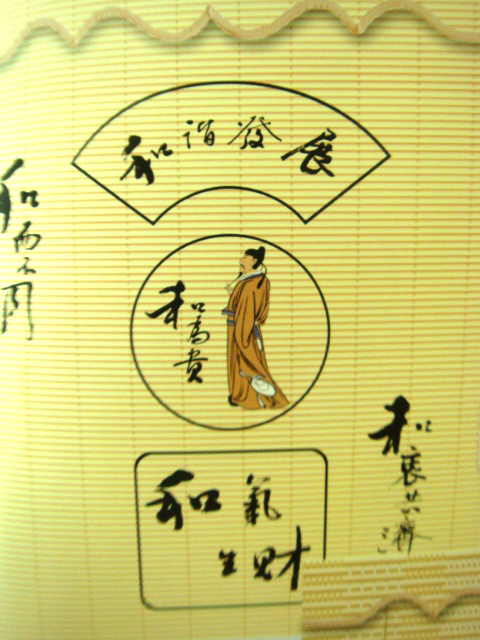 和諧發展
和而不同
和為貴
和衷共濟
和氣
生財